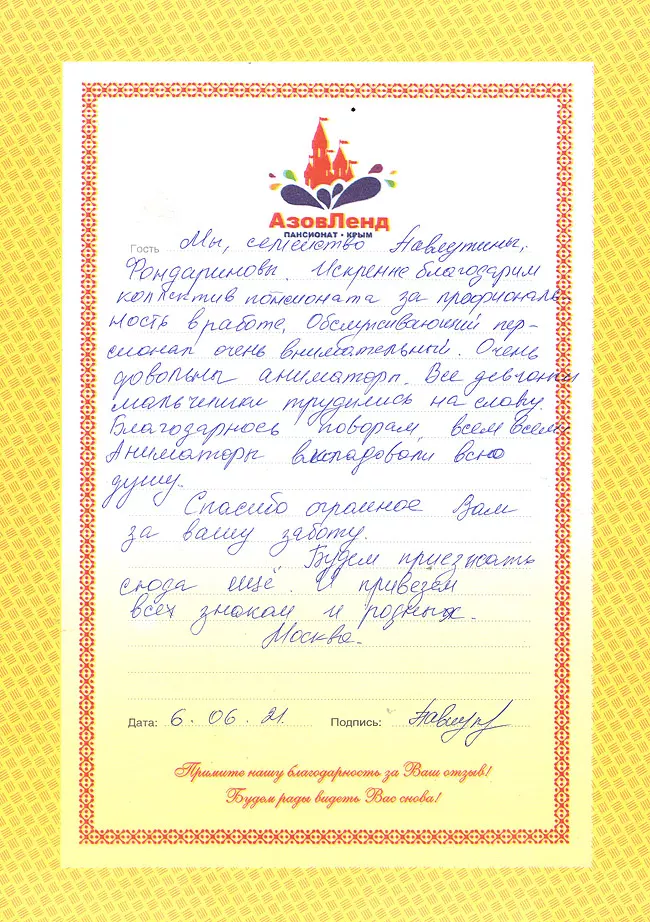 АзовЛенд
ПАНСИОНАТ • КРЫМ
Гость Мы, семейство Павлутины,
Фондариновы. Искренне благодарим
коллектив пансионата за профиональ-
ность в работе. Обслуживающий пер-
сионал очень внимательный. Очень
довольны аниматоры. Все девчонки
мальчешки трудились на славу.
Благодарнось поворам, всем всем
Аниматоры вкладовали всю
душу.
Спасибо огромное Вам
за вашу заботу.
Будем приезжать
сюда ещё. И привезём
всех знаком и родных.
Москва.
Дата: 6. 06. 21. Подпись:
Примите нашу благодарность за Ваш отзыв!
Будем рады видеть Вас снова!